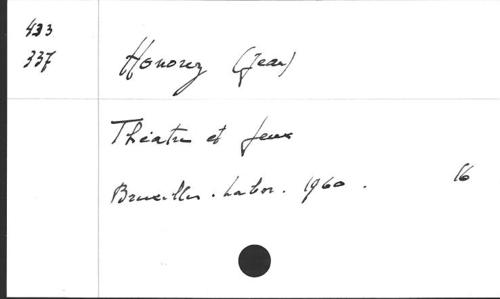 433
337
Honorez (Jean)
Théatre et Jeux
Bruxelles. Labor. 1960. 16